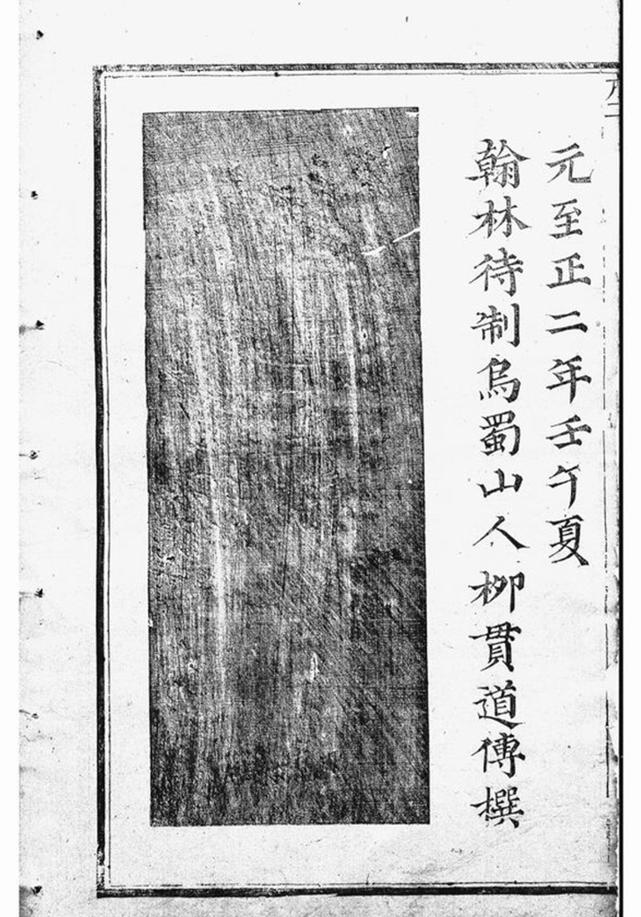 元至正二年壬午夏
翰林待制烏蜀山人柳貫道傅撰